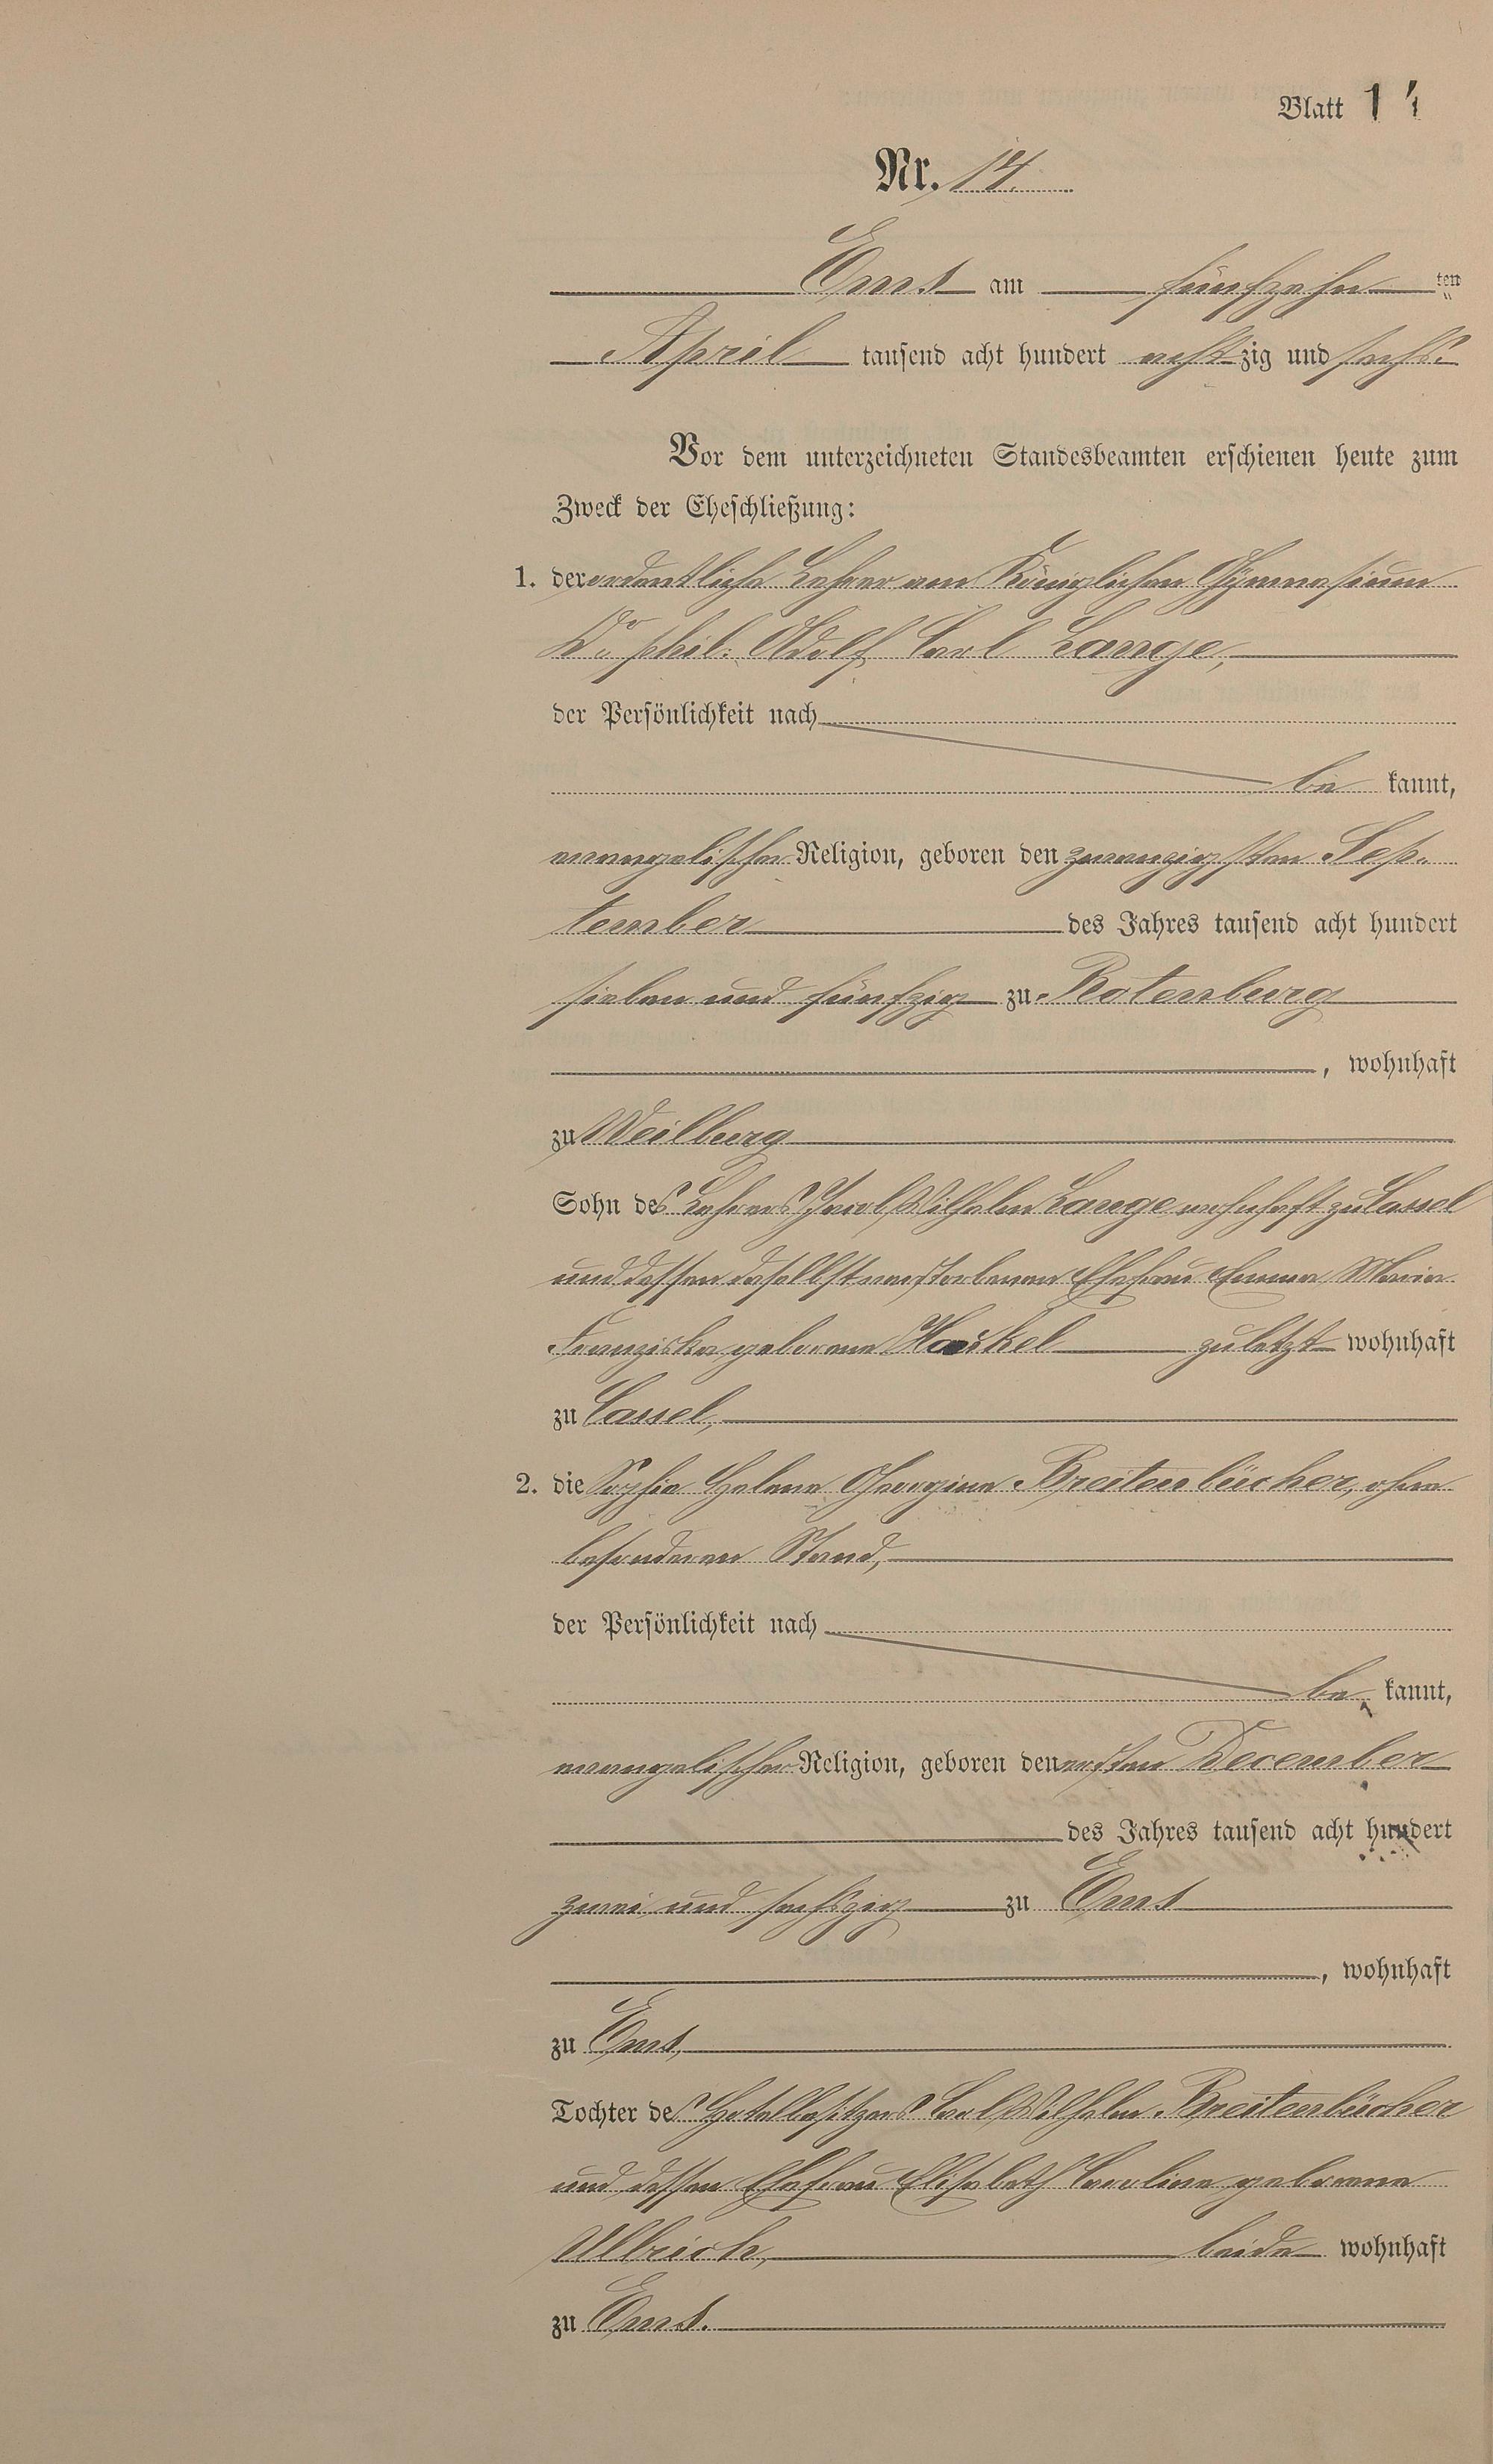 Blatt 14
Nr. 14.
Ems am fünfzehn ten
April tausend acht hundert achtzig und sechs.
Vor dem unterzeichneten Standesbeamten erschienen heute zum
Zweck der Eheschließung:
1. der ordentliche Lehrer am Königlichen Gymnasium
Dr. phil: Adolf Carl Lange,
der Persönlichkeit nach
be kannt,
evangelischer Religion, geboren den zwanzigsten Sep-
tember des Jahres tausend acht hundert
sieben und fünfzig zu Rotenburg
, wohnhaft
zu Weilburg
Sohn des Lehrers Wilhelm Lange wohnhaft zu Cassel
und dessen daselbst verstorbenen Ehefrau Emma Maria
Franziska geborene zuletzt wohnhaft
zu Cassel,
2. die Sophie Helene Georgine Breitenbücher, ohne
besonderen Stand,
der Persönlichkeit nach
be kannt,
evangelischer Religion, geboren den ersten December
des Jahres tausend acht hundert
zwei und sechszig zu Ems
, wohnhaft
zu Ems,
Tochter des Hotelbesitzers Carl Wilhelm Breitenbücher
und dessen Ehefrau Elisabeth Caroline geborene
Ulbrich, beide wohnhaft
zu Ems.